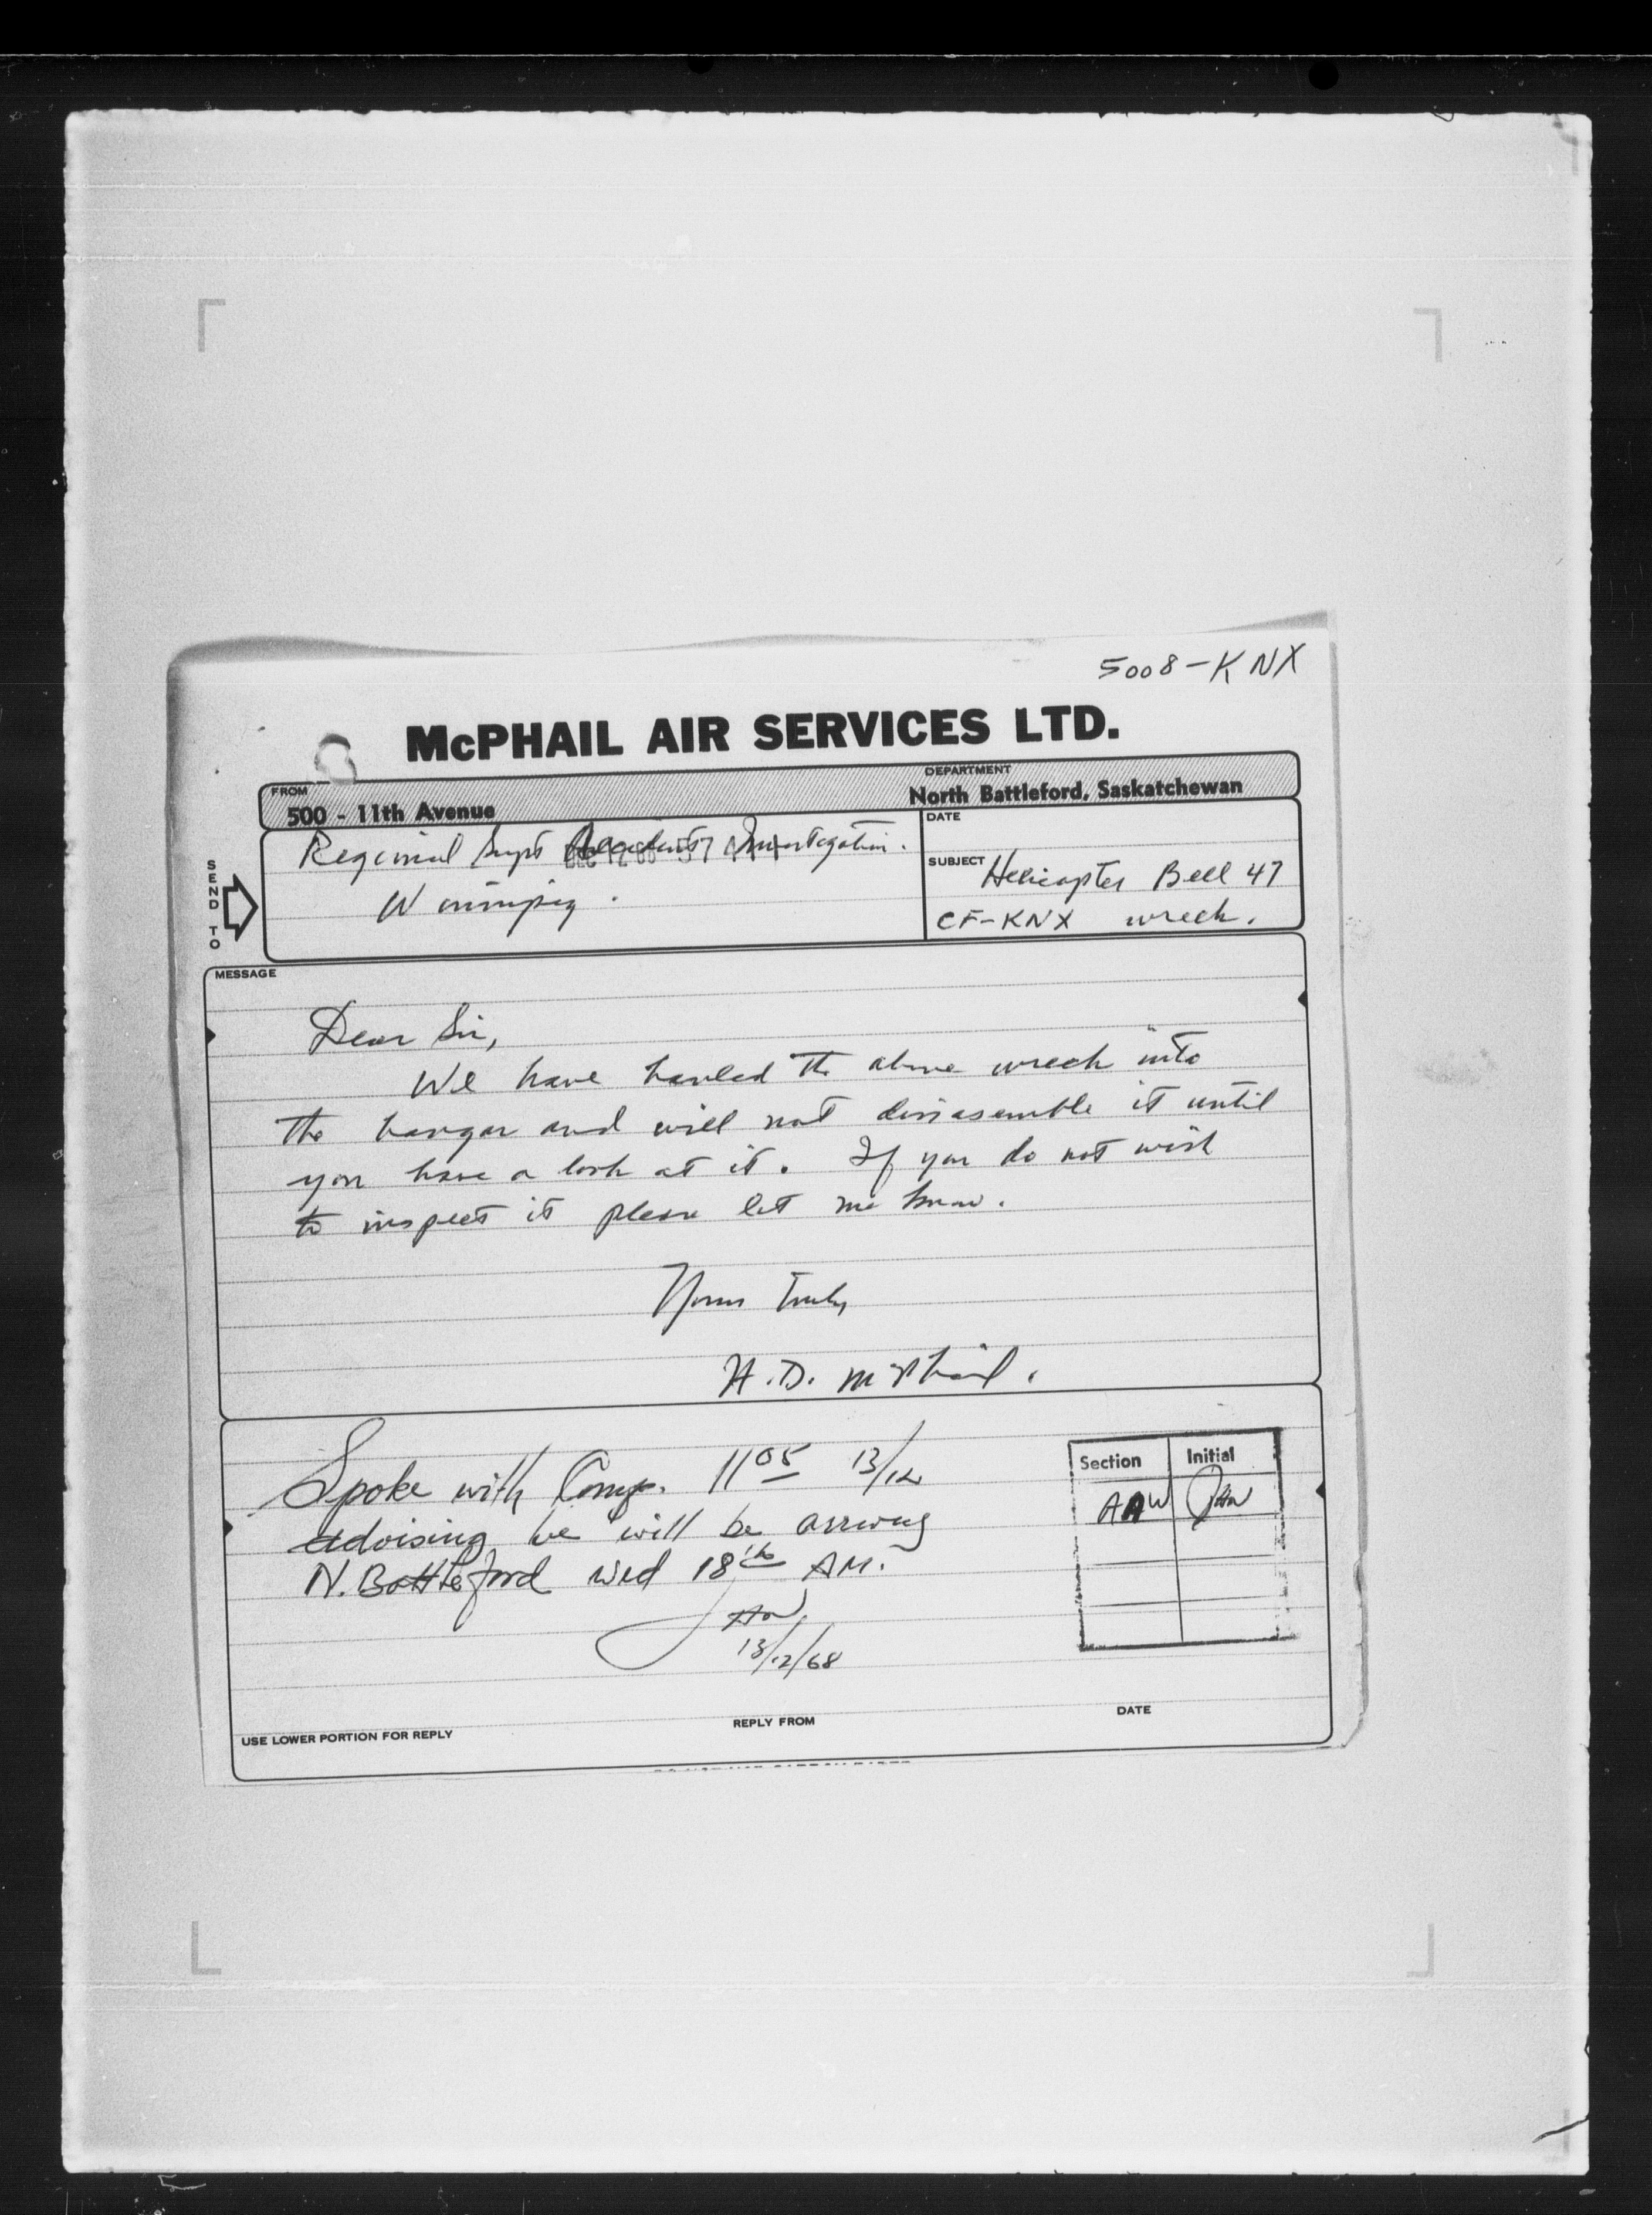 5008-KNX
McPHAIL AIR SERVICES LTD.
FROM
DEPARTMENT
500 - 11th Avenue
North Battleford, Saskatchewan
SEND TO
Regional Supt Accidents Investigation.
Winnipeg.
DATE
SUBJECT Helicopter Bell 47
CF-KNX wreck.
MESSAGE
Dear Sir,
We have hauled the above wreck into
the hangar and will not dissasemble it until
you have a look at it. If you do not wish
to inspect it please let me know.
Yours truly
H.D. McPhail.
Spoke with Comp. 1105 13/12
advising he will be arriving
N. Battleford Wed 18th AM.
13/12/68
Section Initial
AAW
USE LOWER PORTION FOR REPLY
REPLY FROM
DATE